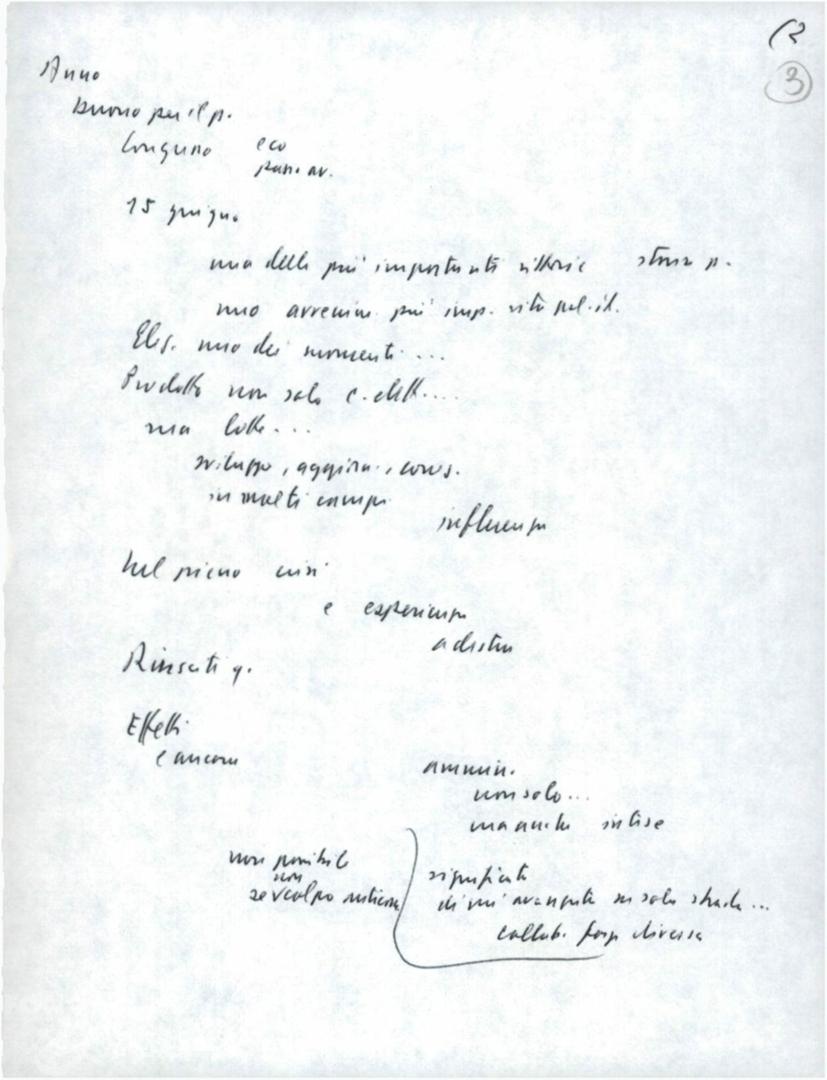 3
Anno
buono per il p.
Congiuno eco
pano av.
15 giugno
una delle più importanti vittorie storia p.
uno avvenim. più imp. vita pol. it.
Elez. uno dei momenti ...
Prodotto non solo c. elett....
ma lotte ...
sviluppo, aggior., cons.
in molti campi
influenza
Nel pieno crisi
e esperienza
a destra
Risultati q.
Effetti
e ancora
ammin.
non solo ...
ma anche intese
non possibile
non
se colpo anticom
significato
di un' avanzata su sola strada ...
collab. forze diverse